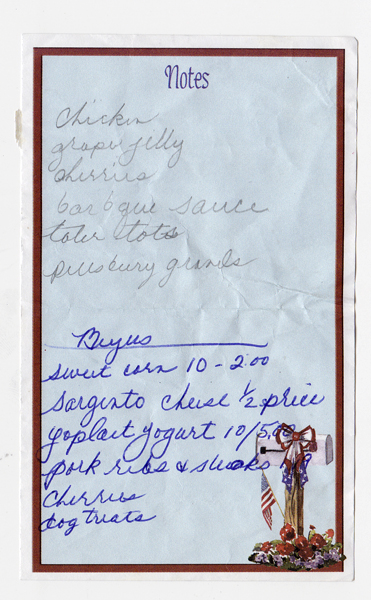 Notes
chicken
grape jelly
cherries
bar b que sauce
tater tots
pillsbury grands
Beyus
sweet corn 10 - 2.00
Sargento cheese 1/2 price
yoplait yogurt 10/5.00
pork ribs & steaks
cherries
dog treats